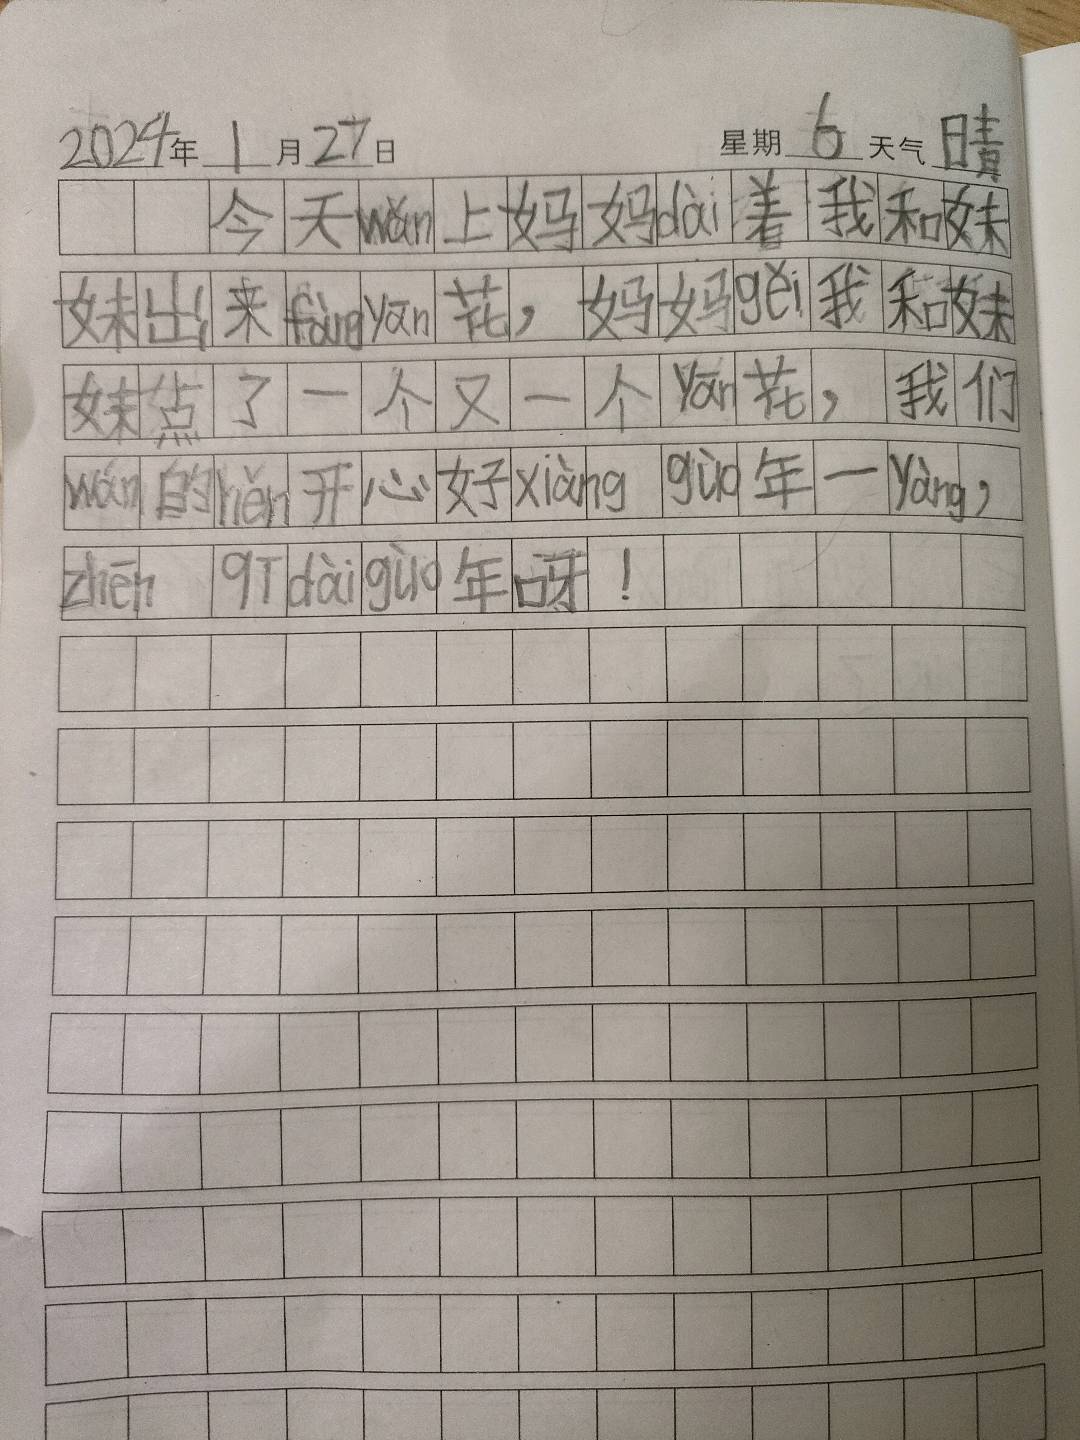 2024年1月27日 星期6天气晴
今天wǎn上妈妈dài着我和妹
妹出来fàngyān花，妈妈gěi我和妹
妹点了一个又一个yān花，我们
wán的hěn开心好xiàng guò年一yàng，
zhēn qī dài guò年呀！